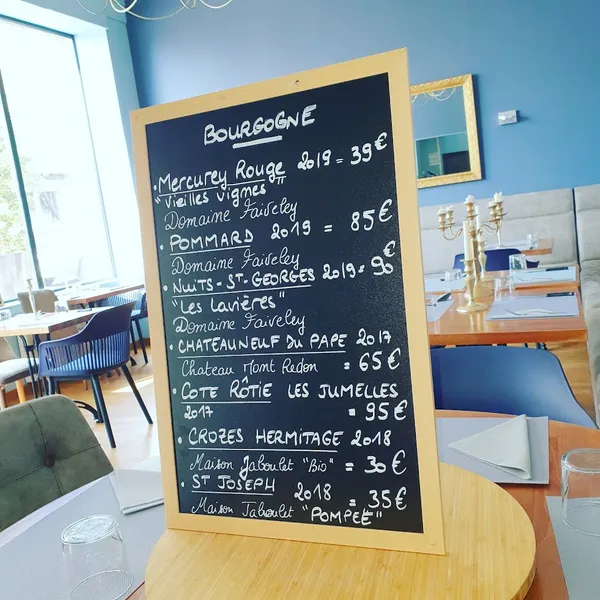 BOURGOGNE
• Mercurey Rouge 2019 = 39€
"Vieilles Vignes"
Domaine Faiveley
• POMMARD 2019 = 85€
Domaine Faiveley
• NUITS-ST-GEORGES 2019 = 90€
"Les Lavières"
Domaine Faiveley
• CHATEAUNEUF DU PAPE 2017
Chateau Mont Redon = 65€
• COTE RÔTIE LES JUMELLES
2017 = 95€
• CROZES HERMITAGE 2018
Maison Jaboulet "Bio" = 30€
• ST JOSEPH 2018 = 35€
Maison Jaboulet "POMPEÉ"